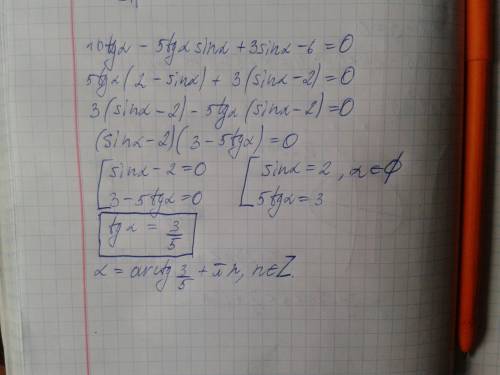 10tgα - 5tgα sinα + 3sinα - 6 = 0
5tgα(2 - sinα) + 3(sinα - 2) = 0
3(sinα - 2) - 5tgα(sinα - 2) = 0
(sinα - 2)(3 - 5tgα) = 0
[ sinα - 2 = 0 [ sinα = 2, α ∈ ∅
3 - 5tgα = 0 5tgα = 3
tgα = 3/5
α = arctg 3/5 + πn, n ∈ Z.